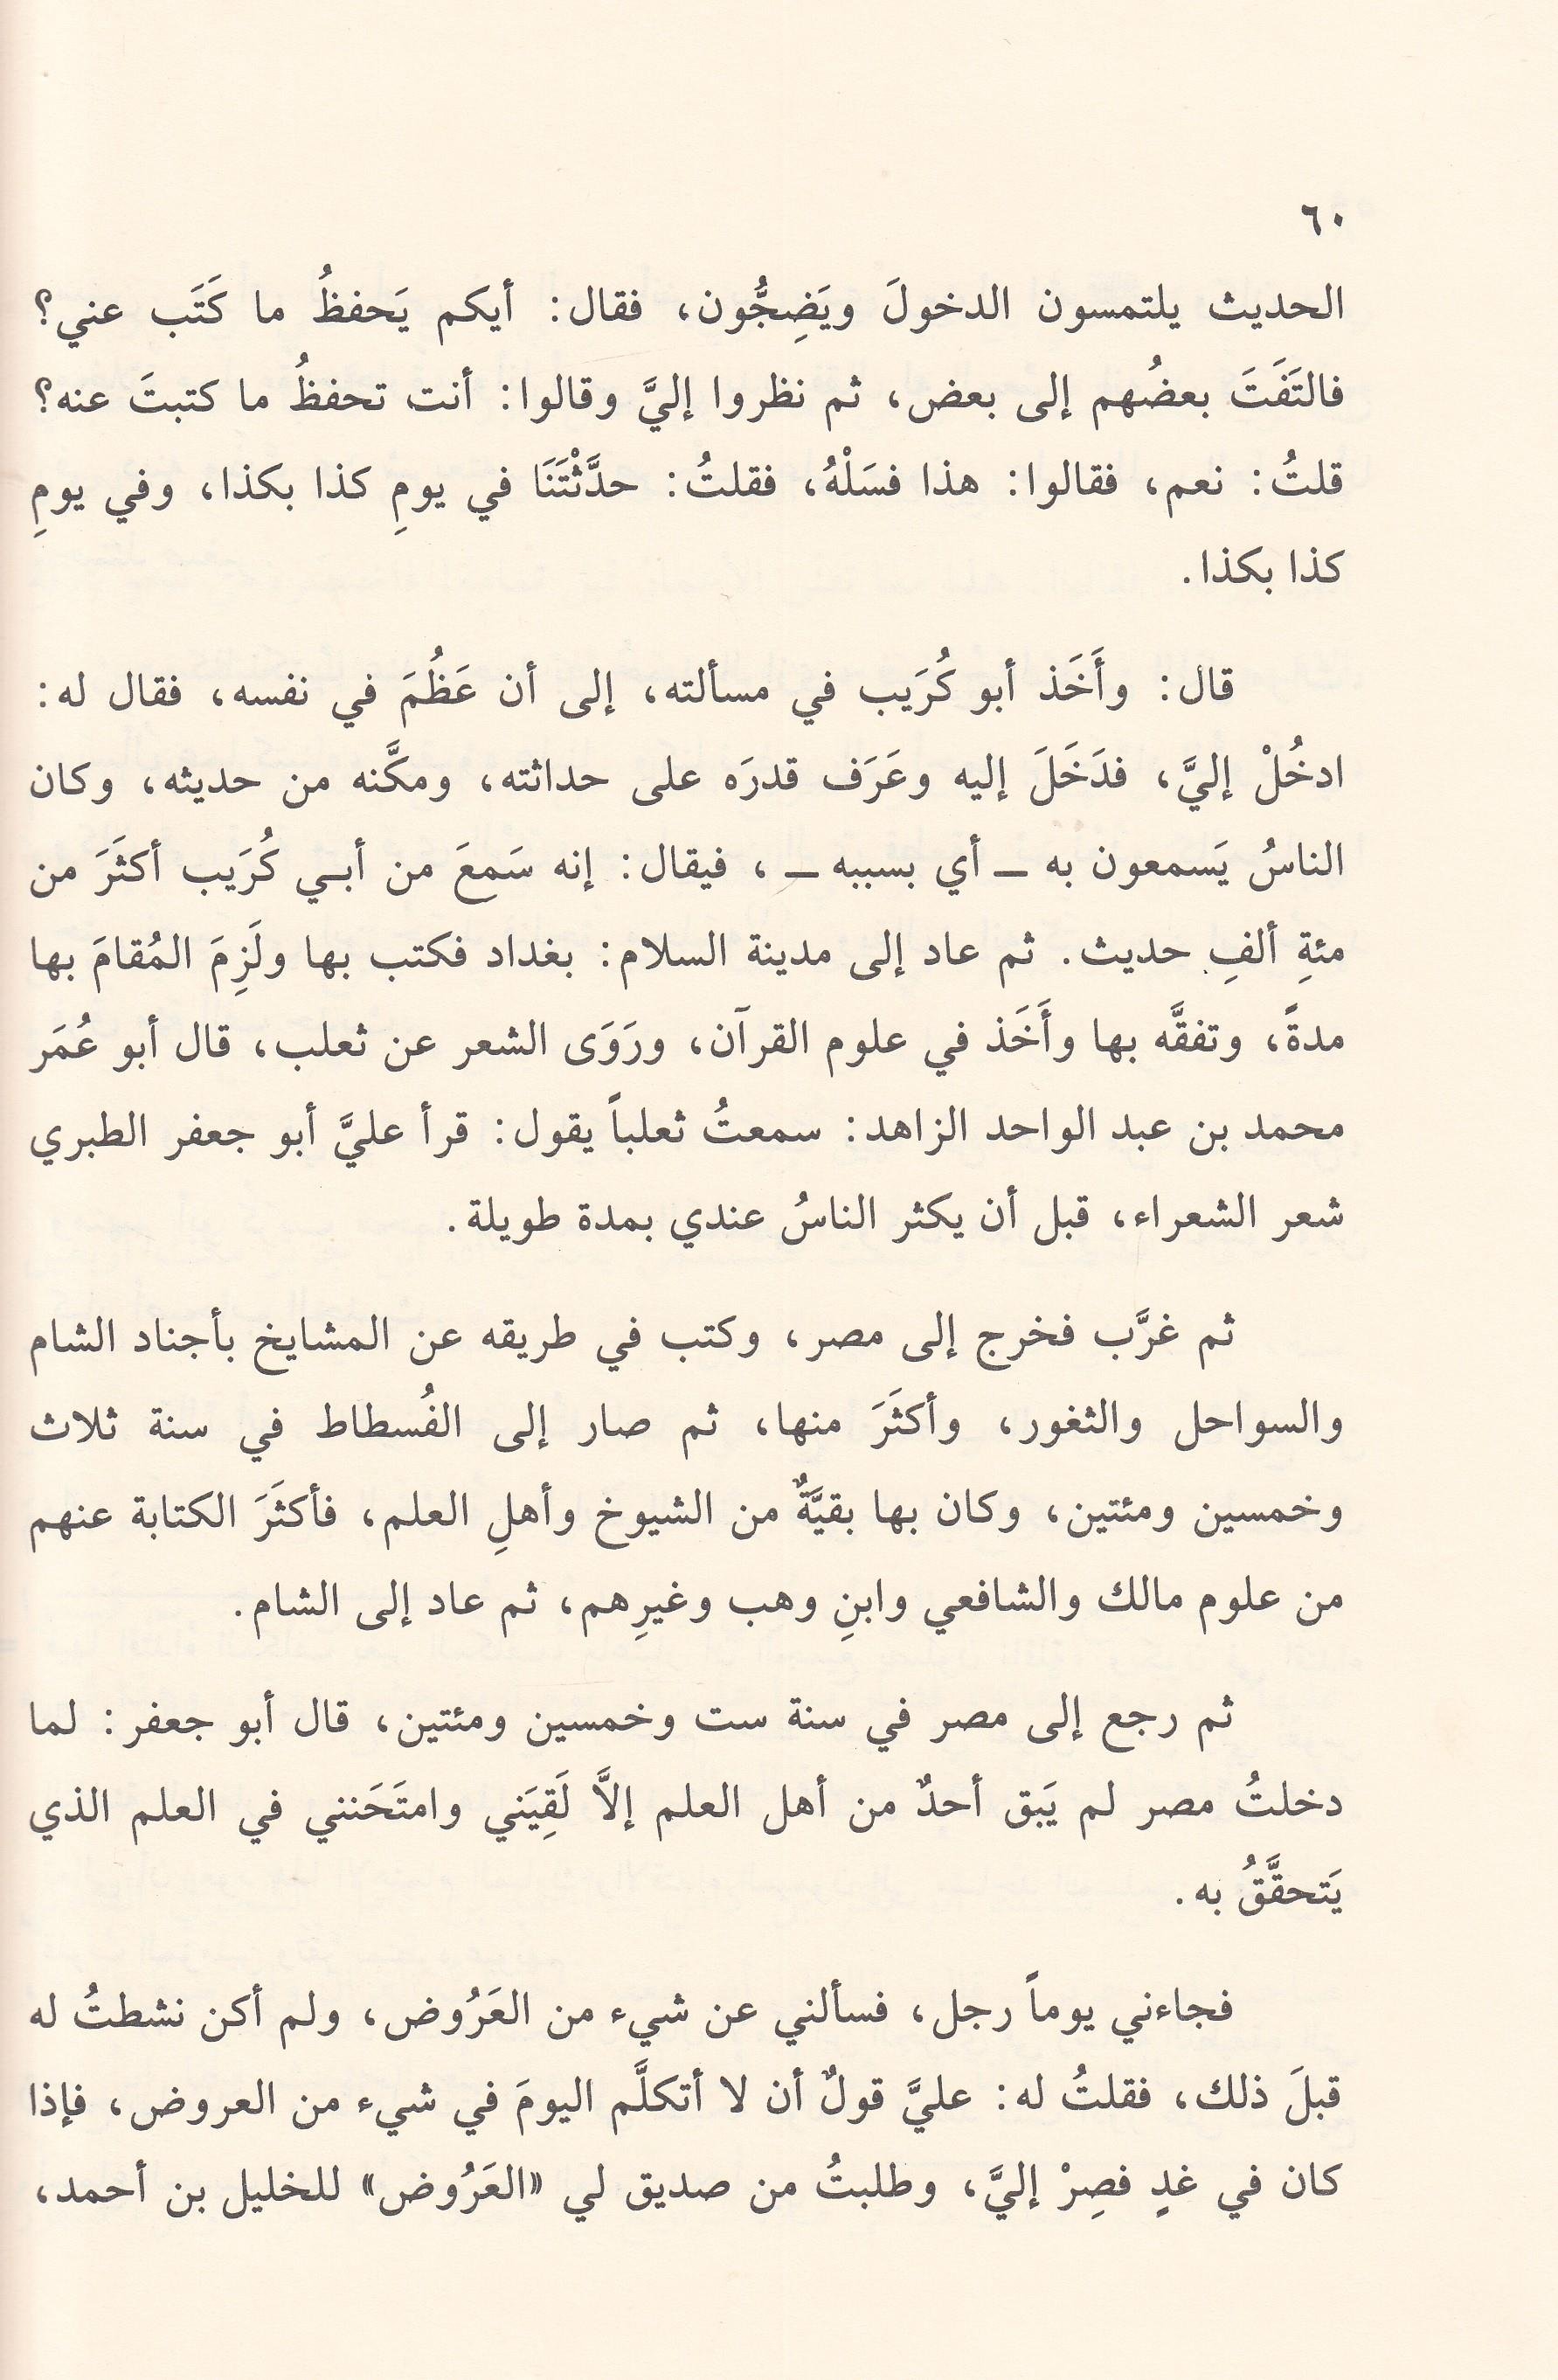 ٦٠
الحديث يلتمسون الدخولَ ويَضِجُّون، فقال: أيكم يَحفظُ ما كَتَب عني؟
فالتَفَتَ بعضُهم إلى بعض، ثم نظروا إليَّ وقالوا: أنت تحفظُ ما كتبتَ عنه؟
قلتُ: نعم، فقالوا: هذا فسَلْهُ، فقلتُ: حدَّثْتَنَا في يومِ كذا بكذا، وفي يومِ
كذا بكذا.
قال: وأَخَذ أبو كُرَيب في مسألته، إلى أن عَظُمَ في نفسه، فقال له:
ادخُلْ إليَّ، فدَخَلَ إليه وعَرَف قدرَه على حداثته، ومكَّنه من حديثه، وكان
الناسُ يَسمعون به ــ أي بسببه ــ ، فيقال: إنه سَمعَ من أبـي كُرَيب أكثَرَ من
مئةِ ألفِ حديث. ثم عاد إلى مدينة السلام: بغداد فكتب بها ولَزِمَ المُقامَ بها
مدةً، وتفقَّه بها وأَخَذ في علوم القرآن، ورَوَى الشعر عن ثعلب، قال أبو عُمَر
محمد بن عبد الواحد الزاهد: سمعتُ ثعلباً يقول: قرأ عليَّ أبو جعفر الطبري
شعر الشعراء، قبل أن يكثر الناسُ عندي بمدة طويلة.
ثم غرَّب فخرج إلى مصر، وكتب في طريقه عن المشايخ بأجناد الشام
والسواحل والثغور، وأكثَرَ منها، ثم صار إلى الفُسطاط في سنة ثلاث
وخمسين ومئتين، وكان بها بقيَّةٌ من الشيوخ وأهلِ العلم، فأكثَرَ الكتابة عنهم
من علوم مالك والشافعي وابنِ وهب وغيرِهم، ثم عاد إلى الشام.
ثم رجع إلى مصر في سنة ست وخمسين ومئتين، قال أبو جعفر: لما
دخلتُ مصر لم يَبق أحدٌ من أهل العلم إلاَّ لَقِيَني وامتَحَنني في العلم الذي
يَتحقَّقُ به.
فجاءني يوماً رجل، فسألني عن شيء من العَرُوض، ولم أكن نشطتُ له
قبلَ ذلك، فقلتُ له: عليَّ قولٌ أن لا أتكلَّم اليومَ في شيء من العروض، فإذا
كان في غدٍ فصِرْ إليَّ، وطلبتُ من صديق لي «العَرُوض» للخليل بن أحمد،